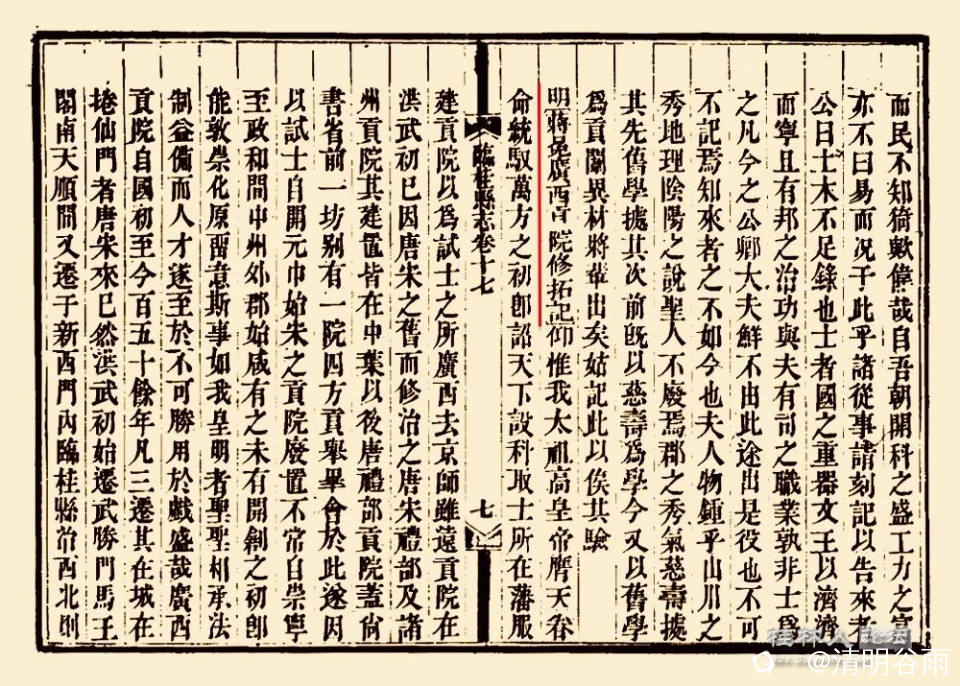 而民不知猗歟偉哉自吾朝開科之盛工力之富
亦不曰易而況于此乎諸從事請刻記以告來者
公曰士木不足錄也士者國之重器文王以濟濟
而寧且有邦之治功與夫有司之職業孰非士爲
之凡今之公卿大夫鮮不出此途出是役也不可
不記焉知來者之不如今也夫人物鍾乎山川之
秀地理陰陽之說聖人不廢焉郡之秀氣慈壽據
其先舊學據其次前旣以慈壽爲學今又以舊學
爲貢闈異材將輩出矣姑記此以俟其驗
明蔣冕廣西貢院修拓記仰惟我太祖高皇帝膺天眷
命統馭萬方之初卽詔天下設科取士所在藩服
臨桂縣志卷十七
七
建貢院以爲試士之所廣西去京師雖遠貢院在
洪武初已因唐宋之舊而修治之唐宋禮部及諸
州貢院其建置皆在中葉以後唐禮部貢院蓋尙
書省前一坊别有一院四方貢舉畢會於此遂因
以試士自開元中始宋之貢院廢置不常自崇寧
至政和間中州外郡始咸有之未有開創之初卽
能敦崇化原留意斯事如我皇明者聖聖相承法
制益備而人才遂至於不可勝用於戲盛哉廣西
貢院自國初至今百五十餘年凡三遷其在城在
捲仙門者唐宋來已然洪武初始遷武勝門馬王
閣南天順間又遷于新西門內臨桂縣治西北則
桂林人論壇
@清明谷雨